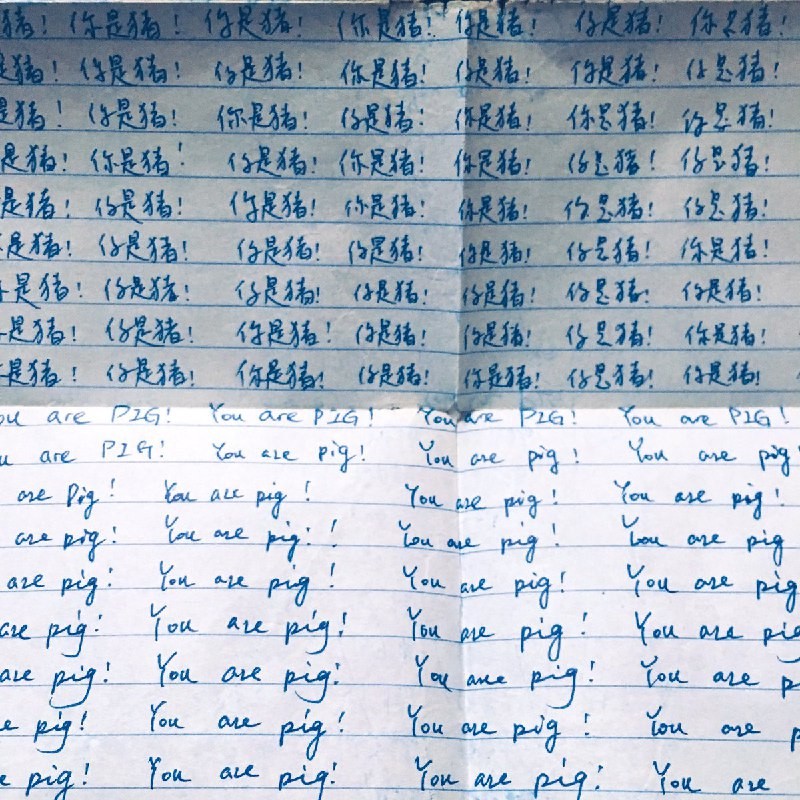 猪! 你是猪! 你是猪! 你是猪! 你是猪! 你是猪! 你是猪!
是猪! 你是猪! 你是猪! 你是猪! 你是猪! 你是猪! 你是猪!
是猪! 你是猪! 你是猪! 你是猪! 你是猪! 你是猪! 你是猪!
是猪! 你是猪! 你是猪! 你是猪! 你是猪! 你是猪! 你是猪!
是猪! 你是猪! 你是猪! 你是猪! 你是猪! 你是猪! 你是猪!
是猪! 你是猪! 你是猪! 你是猪! 你是猪! 你是猪! 你是猪!
是猪! 你是猪! 你是猪! 你是猪! 你是猪! 你是猪! 你是猪!
是猪! 你是猪! 你是猪! 你是猪! 你是猪! 你是猪! 你是猪!
是猪! 你是猪! 你是猪! 你是猪! 你是猪! 你是猪! 你是猪!
ou are PIG! You are PIG! You are PIG! You are PIG!
u are PIG! You are pig! You are pig! You are pig!
are Pig! You are pig! You are pig! You are pig!
are pig! You are pig!! You are pig! You are pig
are pig! You are pig! You are pig! You are pig
are pig! You are pig! You are pig! You are pig
are pig! You are pig! You are pig! You are p
e pig! You are pig! You are pig! You are p
e pig! You are pig! You are pig! You are